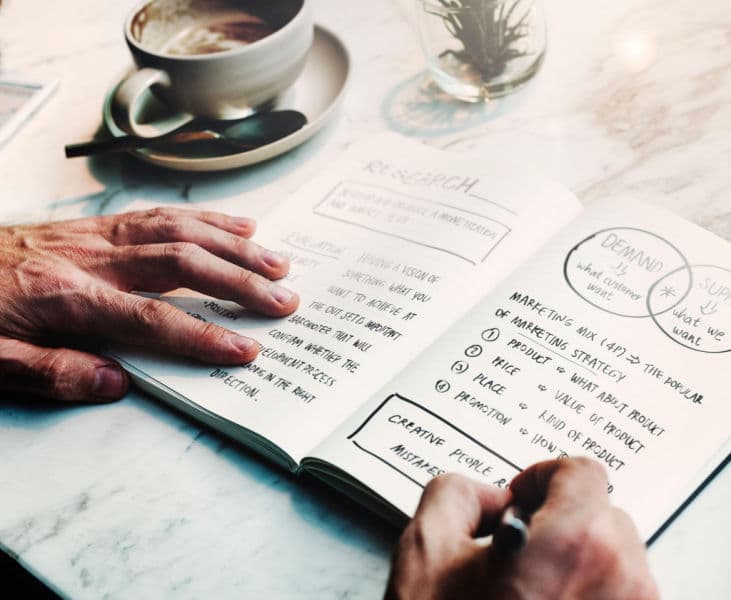 RESEARCH
AND MARKET PLAN
EVALUATION
HAVING A VISION OF
SOMETHING WHAT YOU
WANT TO ACHIEVE AT
THE OUTSET IMPORTANT
BAROMETER THAT WILL
CONFIRM WHETHER THE
DEVELOPMENT PROCESS
IN THE RIGHT
DIRECTION.
DEMAND
what customer
want
SUPP
what we
want
MARKETING MIX (4P) ⇒ THE POPULAR
OF MARKETING STRATEGY
① PRODUCT ⇒ WHAT ABOUT PRODUCT
② PRICE ⇒ VALUE OF PRODUCT
③ PLACE ⇒ KIND OF PRODUCT
④ PROMOTION ⇒ HOW TO
CREATIVE PEOPLE
MISTAKES